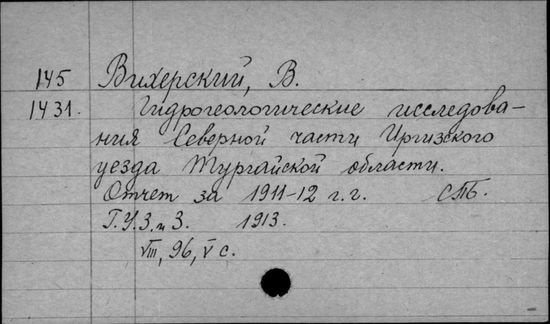 145 Вихерский, В.
1431. Гидрогеологические исследова-
ния Северной части Иргизского
уезда Тургайской области.
Отчет за 1911-12 г.г. СПБ.
Г.У.З. и З. 1913.
VIII, 96, V с.